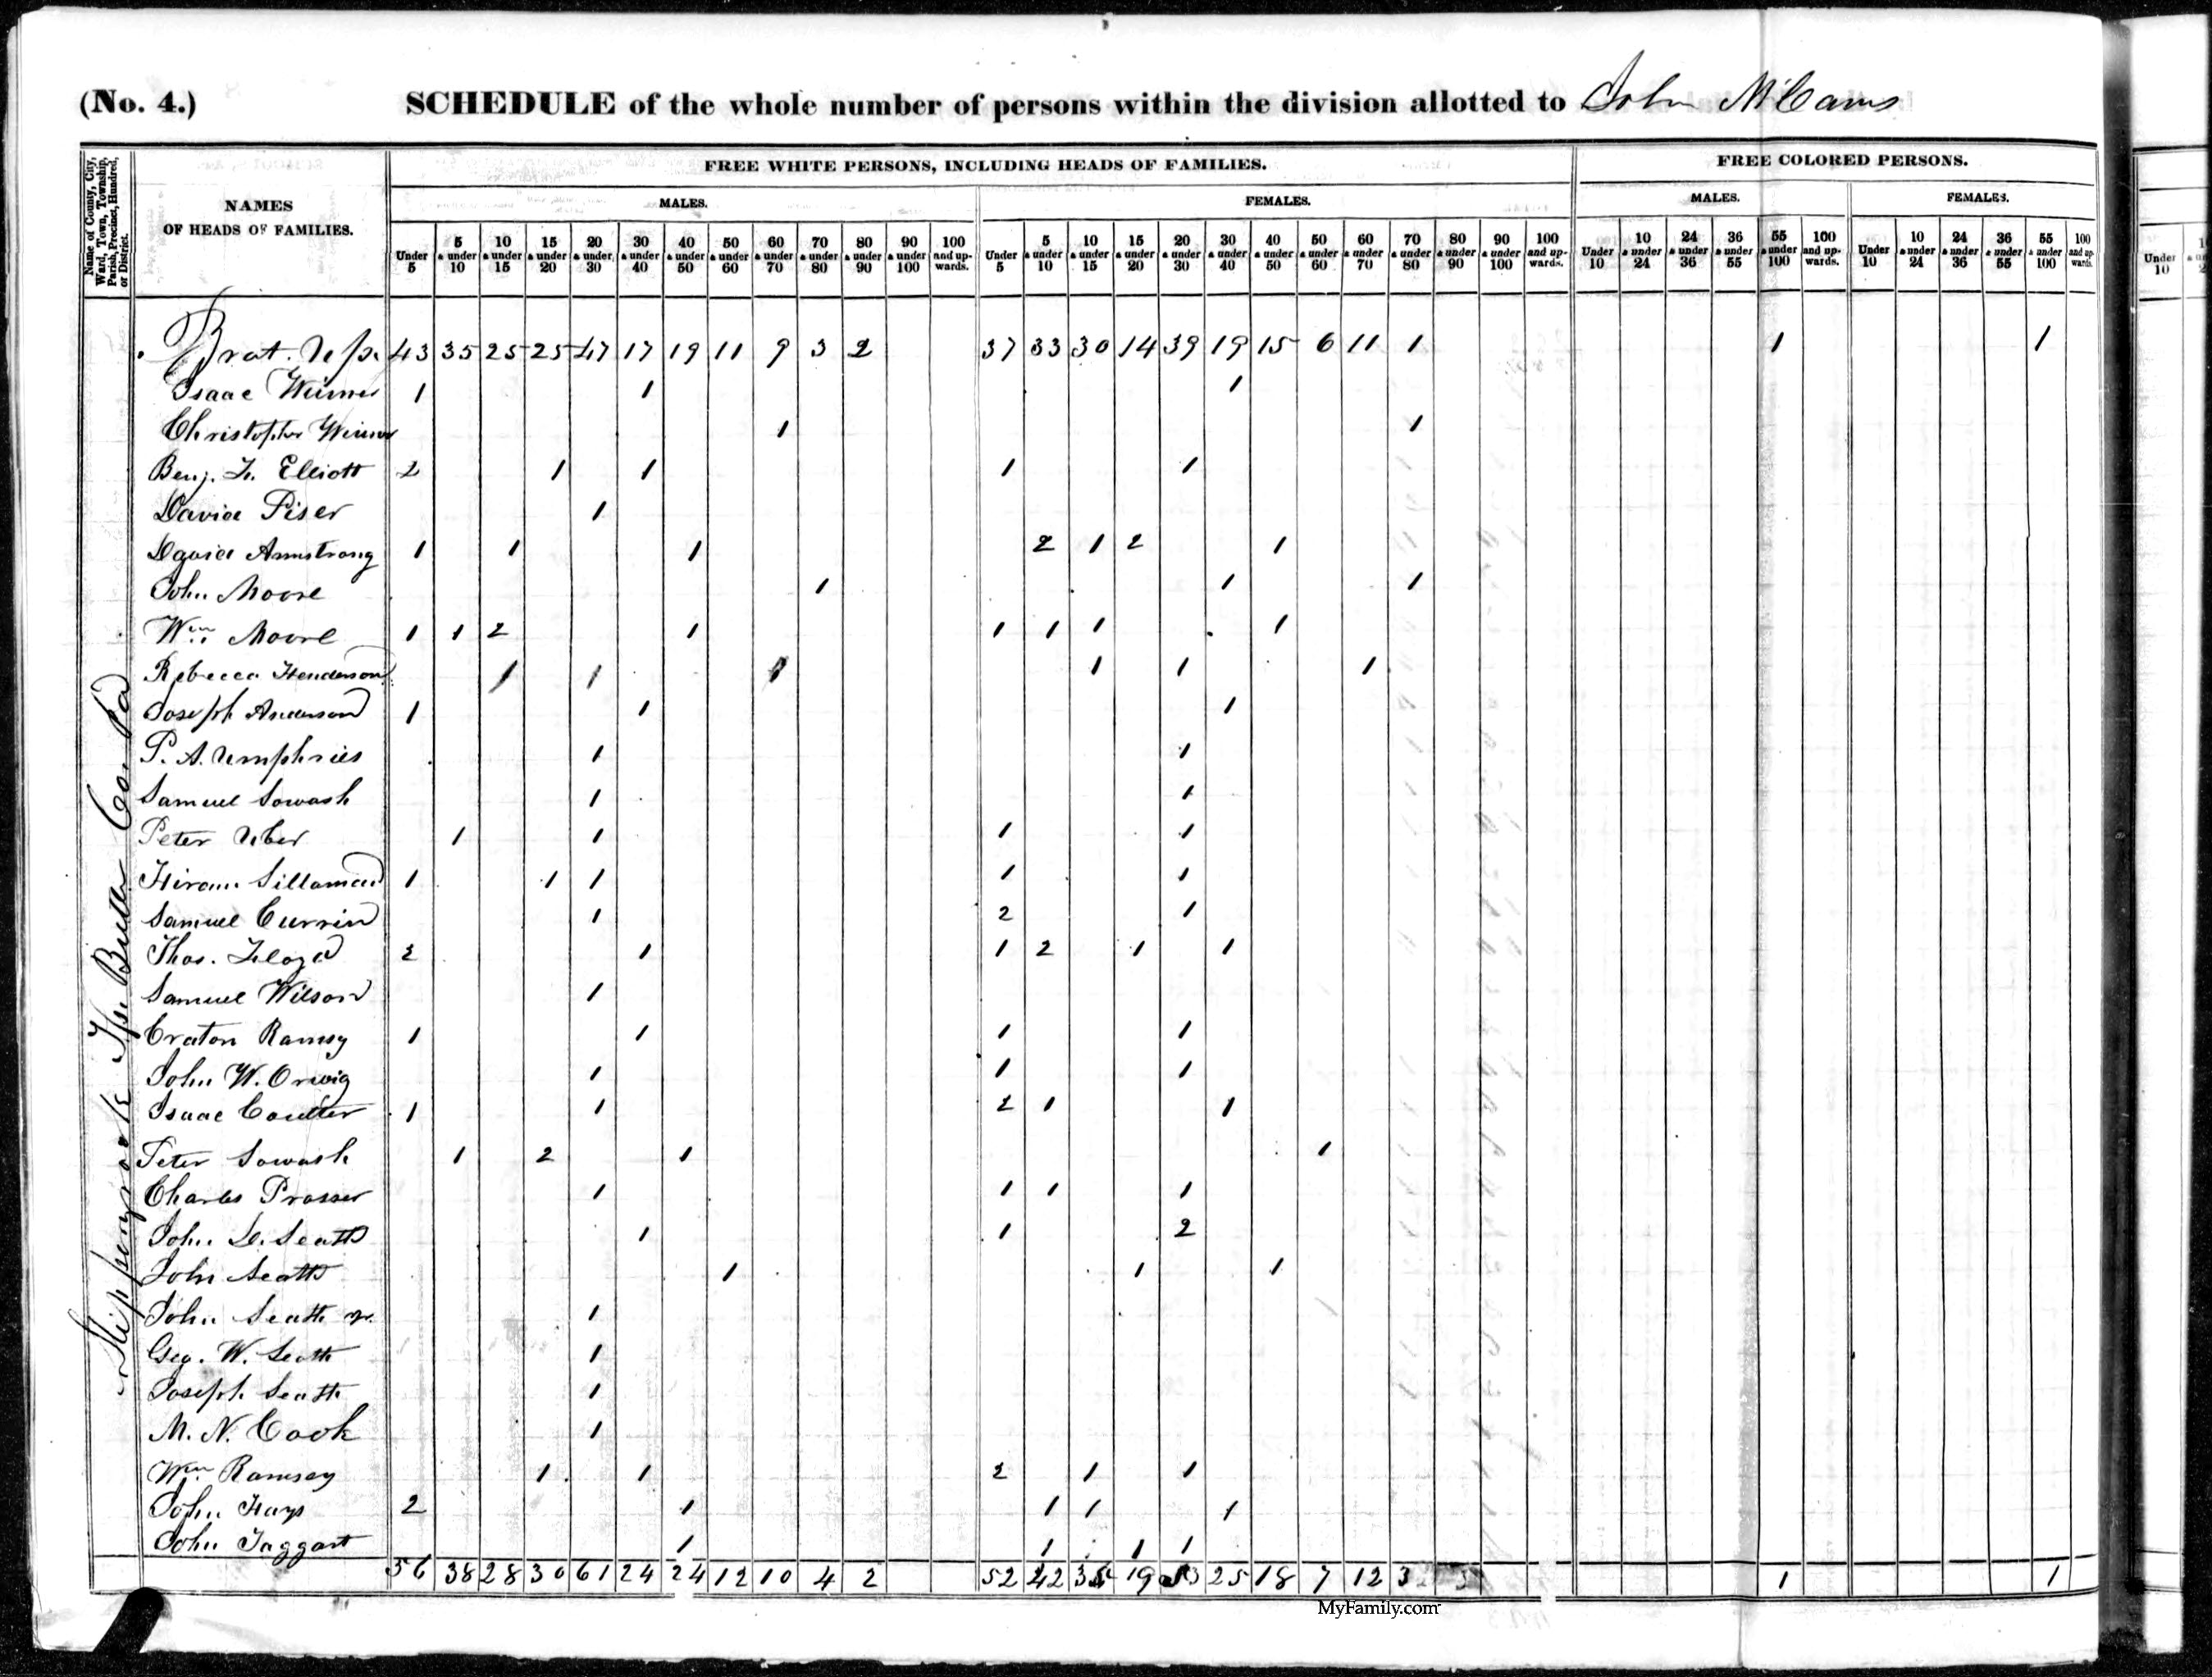 (No. 4.) SCHEDULE of the whole number of persons within the division allotted to John McCams
Name of County, City, Ward, Town, Township, Parish, Precinct, Hundred, or District.
NAMES OF HEADS OF FAMILIES.
FREE WHITE PERSONS, INCLUDING HEADS OF FAMILIES.
FREE COLORED PERSONS.
MALES. FEMALES. MALES. FEMALES.
Under 5 5 & under 10 10 & under 15 15 & under 20 20 & under 30 30 & under 40 40 & under 50 50 & under 60 60 & under 70 70 & under 80 80 & under 90 90 & under 100 100 and up-wards. Under 5 5 & under 10 10 & under 15 15 & under 20 20 & under 30 30 & under 40 40 & under 50 50 & under 60 60 & under 70 70 & under 80 80 & under 90 90 & under 100 100 and up-wards. Under 10 10 & under 24 24 & under 36 36 & under 55 55 & under 100 100 and up-wards. Under 10 10 & under 24 24 & under 36 36 & under 55 55 & under 100 100 and up-wards. Under 10
Slippery rock Tp. Butler Co. Pa
Brot. Up. 43 35 25 25 47 17 19 11 9 3 2 37 33 30 14 39 19 15 6 11 1 1 1
Isaac Weimer 1 1 1
Christopher Weimer 1 1
Benj. F. Elliott 2 1 1 1 1
David Piser 1
David Armstrong 1 1 1 2 1 2 1
John Moore 1 1 1
Wm. Moore 1 1 2 1 1 1 1 1
Rebecca Henderson 1 1 1 1 1 1
Joseph Anderson 1 1 1
P. A. Umphries 1 1
Samuel Sowash 1 1
Peter Uber 1 1 1 1
Hiram Sillaman 1 1 1 1 1
Samuel Currin 1 2 1
Thos. Floyd 2 1 1 2 1 1
Samuel Wilson 1
Craton Ramsy 1 1 1 1
John W. Orwig 1 1 1
Isaac Coulter 1 1 2 1 1
Peter Sowash 1 2 1 1
Charles Prosser 1 1 1 1
John D. Seath 1 1 2
John Seath 1 1 1
John Seath Jr. 1
Geo. W. Seath 1
Joseph Seath 1
M. N. Cook 1
Wm. Ramsey 1 1 2 1 1
John Hays 2 1 1 1 1
John Taggart 1 1 1 1
56 38 28 30 61 24 24 12 10 4 2 52 42 35 19 53 25 18 7 12 3 1 1
MyFamily.com